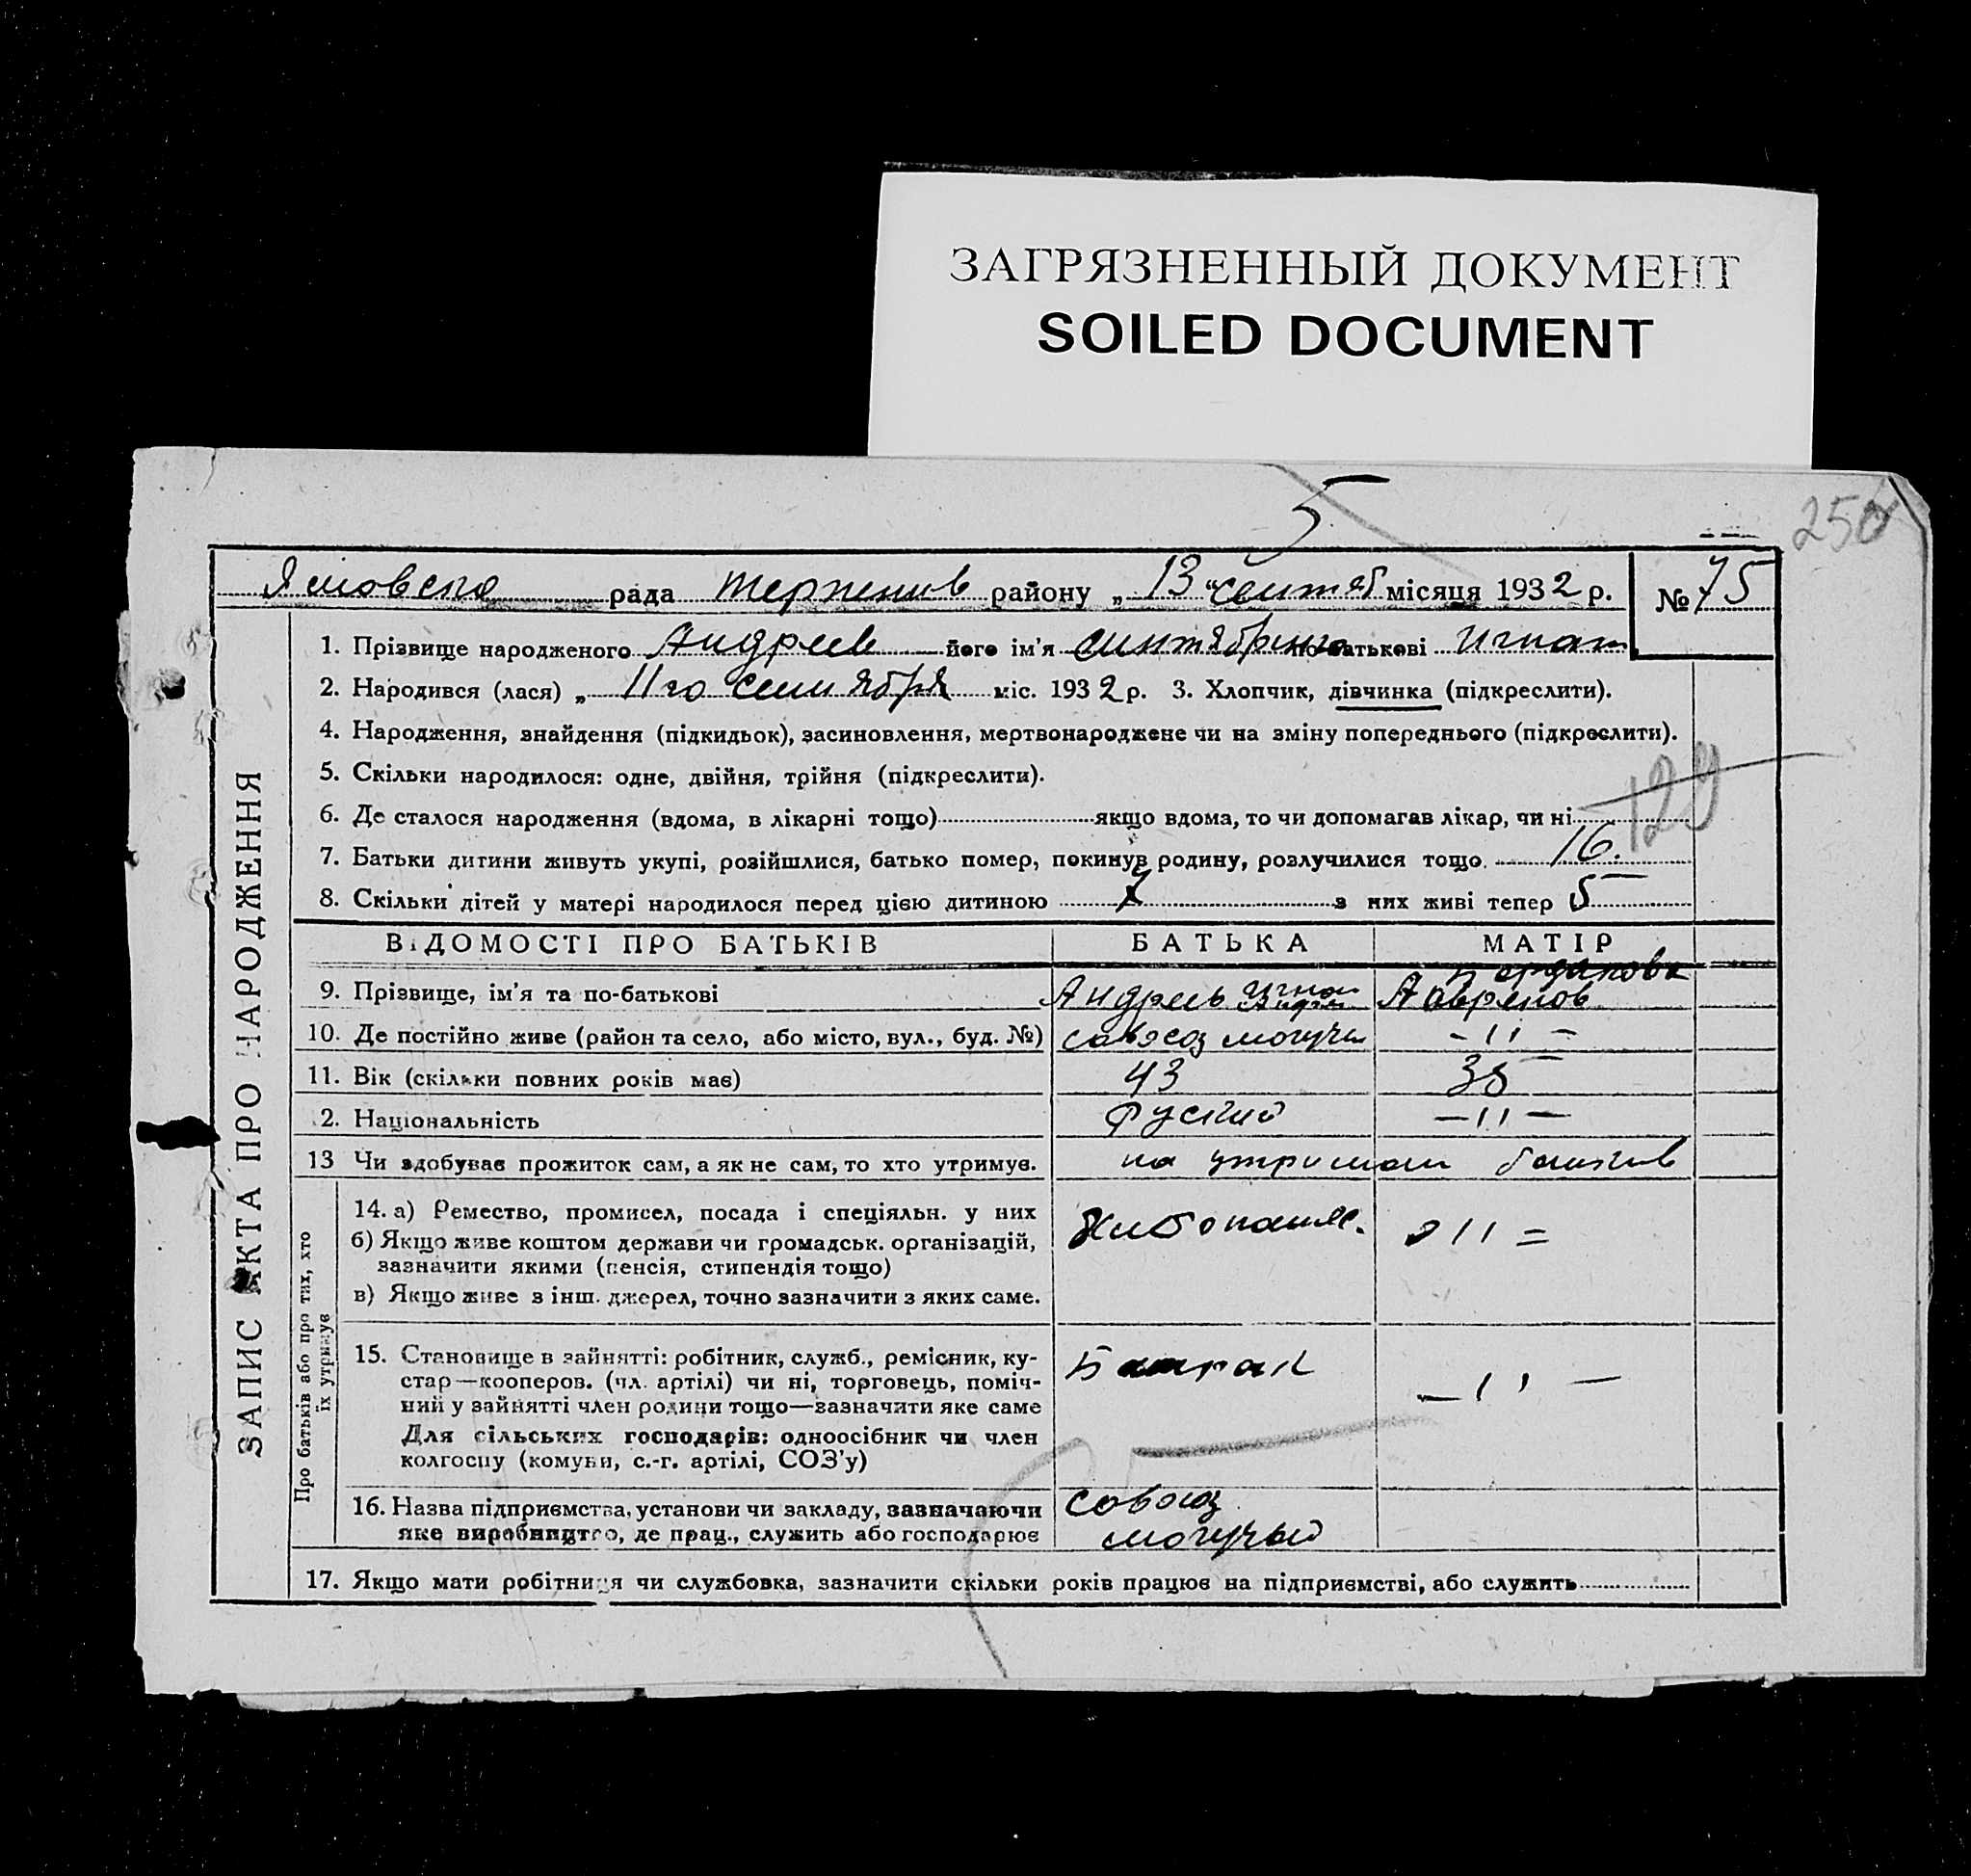 ЗАГРЯЗНЕННЫЙ ДОКУМЕНТ
SOILED DOCUMENT
5
250
рада района „13“ сентяб місяця 1932 р. № 75
ЗАПИС АКТА ПРО НАРОДЖЕННЯ
1. Прізвище народженого Андреев його ім'я по-батькові Игнат
2. Народився (лася) „ 11го сентября міс. 1932 р. 3. Хлопчик, дівчинка (підкреслити).
4. Народження, знайдення (підкидьок), засиновлення, мертвонароджене чи на зміну попереднього (підкреслити).
5. Скільки народилося: одне, двійня, трійня (підкреслити).
129
6. Де сталося народження (вдома, в лікарні тощо) якщо вдома, то чи допомагав лікар, чи ні
7. Батьки дитини живуть укупі, розійшлися, батько помер, покинув родину, розлучилися тощо 16.
8. Скільки дітей у матері народилося перед цією дитиною 7 з них живі тепер 5
ВІДОМОСТІ ПРО БАТЬКІВ БАТЬКА МАТІР
9. Прізвище, ім'я та по-батькові Андреев
10. Де постійно живе (район та село, або місто, вул., буд. №) совхоз могучи -11-
11. Вік (скільки повних років має) 43 35
2. Національність Руский -11-
13 Чи здобуває прожиток сам, а як не сам, то хто утримує. на утриман батьков
Про батьків або про тих, хто
їх утримує
14. а) Ремество, промисел, посада і спеціяльн. у них
б) Якщо живе коштом держави чи громадськ. організацій,
зазначити якими (пенсія, стипендія тощо)
в) Якщо живе з інш. джерел, точно зазначити з яких саме.
11 =
15. Становище в зайнятті: робітник, служб., ремісник, ку-
стар—кооперов. (чл. артілі) чи ні, торговець, поміч-
ний у зайнятті член родини тощо—зазначити яке саме
Для сільських господарів: одноосібник чи член
колгоспу (комуни, с.-г. артілі, СОЗ'у)
Батрак -11-
16. Назва підприємства, установи чи закладу, зазначаючи
яке виробництво, де прац., служить або господарює
совхоз
могучый
17. Якщо мати робітниця чи службовка, зазначити скільки років працює на підприємстві, або служить